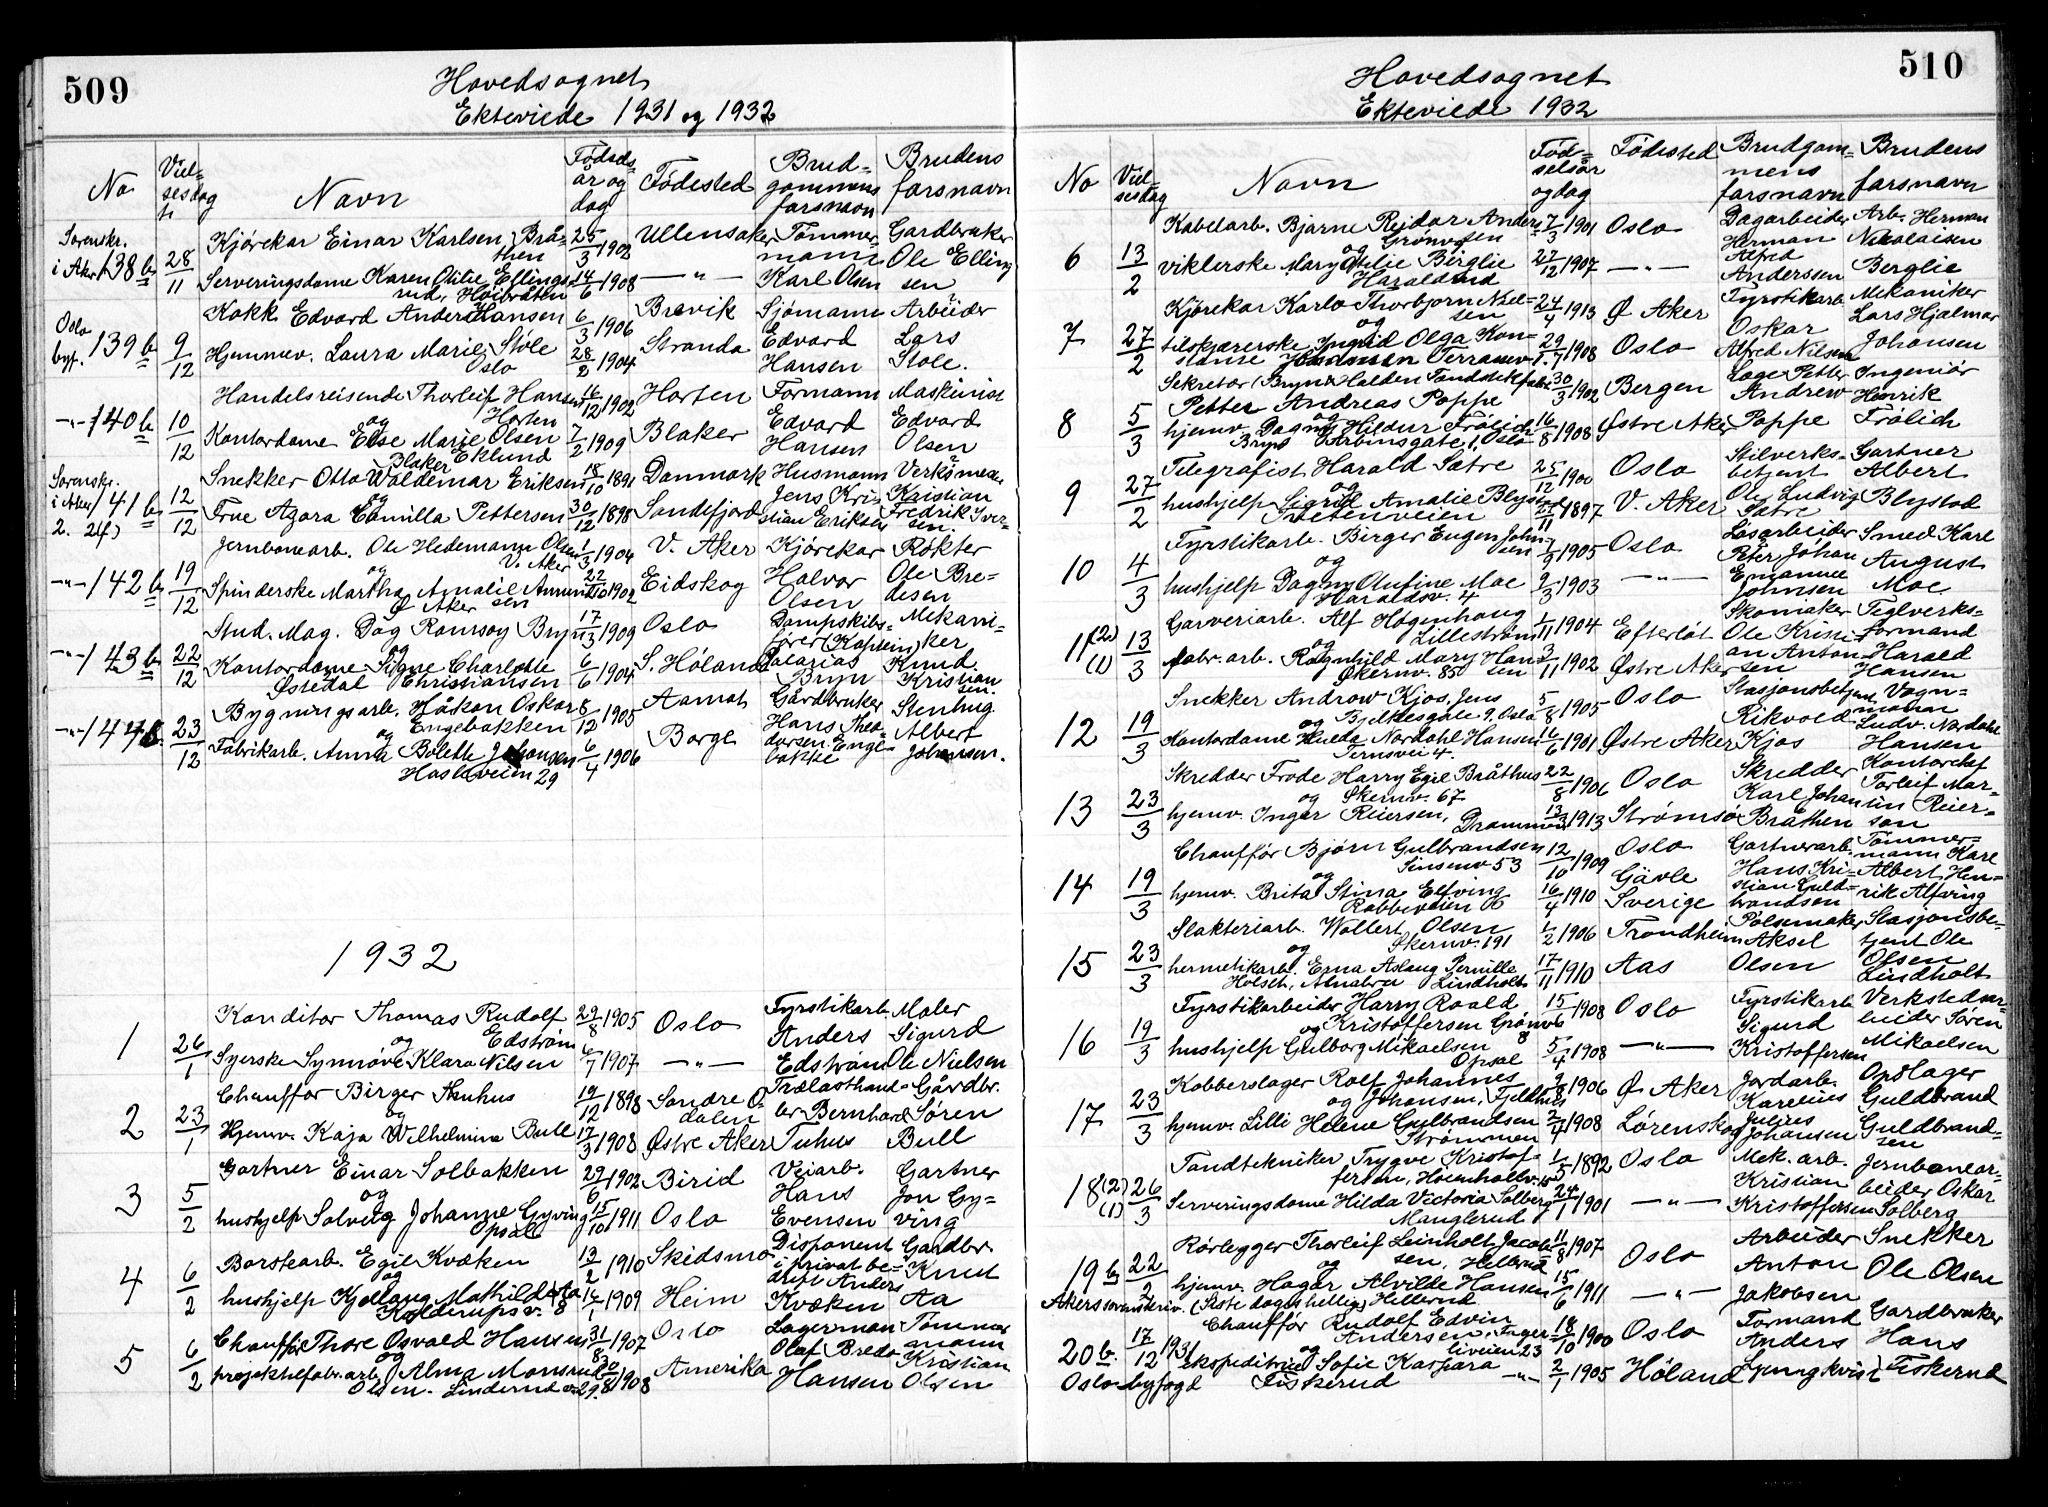 509
Hovedsognet
Ekteviede 1931 og 1932
No
Viel-
sesdag
Navn
Fødsels
år og
dag
Fødested
Brud-
gommens
farsnavn
Brudens
farsnavn
Sorenskr.
i Aker 138 b 28/11
Kjørekar Einar Karlsen Brå-
then 25/3 1902 Ullensaker Tømmer- Gardbruker
mann Ole Elling
Serveringsdame Karen Otilie Ellings- 14/6 1908 —"— Karl Olsen sen
rud, Høibråten
Oslo
byf. 139 b 9/12
Kokk Edvard Anders Hansen 6/3 1906 Brevik Sjømann Arbeider
Hjemmev. Laura Marie Støle 28/2 1904 Stranda Edvard Lars
Oslo Hansen Støle.
-"- 140 b 10/12
Handelsreisende Thorleif Hansen 16/12 1902 Horten Formann Maskinist
og Horten Edvard Edvard
Kontordame Else Marie Olsen 7/2 1909 Blaker Hansen Olsen
Blaker Eklund
Sorenskr.
i Aker 141 b 12/12
2. 2f)
Snekker Otto Waldemar Eriksen 18/10 1891 Danmark Husmann Verksmes.
og Jens Kri- Kristian
Frue Agara Camilla Pettersen 30/12 1898 Sandefjord stian Eriksen Fredrik Iver-
sen.
-"- 142 b 19/12
Jernbanearb. Ole Hedemann Olsen 1/3 1904 V. Aker Kjørekar Røkter
og V. Aker Halvor Ole Bre-
Spinderske Martha Amalie Amund- 22/10 1902 Eidskog Olsen desen
Ø Aker sen
-"- 143 b 22/12
Stud. Mag. Dag Ramsøy Bryn 17/3 1909 Oslo Dampskibs- Mekani-
og fører (Kaptein) ker
Kontordame Signe Charlotte 6/6 1904 S. Høland Knud
Østedal Christiansen Bryn Kristian
sen.
-"- 144 b. 23/12
Bygningsarb. Håkon Oskar 8/12 1905 Aamot Gårdbruker Stenhug.
og Engebakken Hans Theo- Albert
Fabrikarb. Anna Bolette Johansen 6/4 1906 Borge dorsen Enge- Johansen.
Hasleveien 29 bakke
1932
1 26/1
Konditor Thomas Rudolf 29/8 1905 Oslo Fyrstikarb. Maler
og Edstrøm Anders Sigurd
Syerske Synnøve Klara Nilsen 6/7 1907 —"— Edstrøm Ole Nielsen
2 23/1
Chauffør Birger Tuhus 19/12 1898 Søndre O- Trælasthand- Gårdbr.
og dalen ler Bernhard Søren
Hjemv. Kaja Wilhelmine Bull 17/3 1908 Østre Aker Tuhus Bull
3 5/2
Gartner Einar Solbakken 29/6 1902 Birid Veiarb. Gartner
og Hans Jon Gy-
hushjelp Solveig Johanne Gyving 15/10 1911 Oslo Evensen ving
Opsal
4 6/2
Børstearb. Egil Kvæken 13/2 1910 Skedsmo Disponent Gardbr.
og i privat be- Knut
hushjelp Kjellaug Mathilde Aa 14/1 1909 Heim drift Anders Aa
Kalderupsv. 8 Kvæken
5 6/2
Chauffør Thore Osvald Hansen 31/8 1907 Oslo Lagermann Tømmer
og Olaf Brede mann
projektilfabr.arb. Alma Monsrud 20/8 1908 Amerika Hansen Kristian
Olsen. Linderud v. 29. Olsen
510
Hovedsognet
Ekteviede 1932
No
Viel-
sesdag
Navn
Fød-
selsår
og dag
Fødested
Brudgom-
mens
farsnavn
Brudens
farsnavn
6 13/2
Kabelarb. Bjarne Reidar Anders- 7/3 1901 Oslo Dagarbeider Arb. Herman
og Grønvo sen Herman Nikolaisen
viklerske Mary Otilie Berglie 27/12 1907 —"— Alfred Berglie
Haralsrud Anderssen
7 27/2
Kjørekar Karlo Thorbjørn Niel- 24/4 1913 Ø Aker Fyrstikarb. Mekaniker
og sen Oskar Lars Hjalmar
tilskjærerske Ingrid Olga Kon- 29/1 1908 Oslo Alfred Nilsen Johansen
stanse Johansen Terrassev.
8 5/3
Sekretær (Bryn & Halden Tændstikfabr. 30/3 1902 Bergen Lage Petter Ingeniør
Petter Andreas Poppe Andrew Henrik
og
hjemv. Dagny Hildur Frölich 16/8 1908 Østre Aker Poppe Frölich
Bryn Arbinsgate 1, Oslo
9 27/2
Telegrafist Harald Sætre 25/12 1900 Oslo Stilverks- Gartner
og betjent Albert
hushjelp Sigrid Amalie Blystad 27/11 1897 V. Aker Ole Ludvig Blystad
Tvetenveien Sætre
10 4/3
Fyrstikarb. Birger Eugen John- 7/9 1905 Oslo Løsarbeider Smed Karl
og sen Peter Johan August
hushjelp Dagny Olufine Moe 2/3 1903 —"— Emanuel Moe.
Haraldsv. 4 Johnsen
11 (2) 13/3
(1)
Garveriarb. Alf Høgenhaug 1/11 1904 Efterløt Skomaker Teglverks-
og Lillestrøm Ole Kristi- formand
fabr.arb. Ragnhild Mary Han- 3/11 1902 Østre Aker an Anton- Harald
Økernv. 85 sen sen Hansen
12 19/3
Snekker Andrew Kjos. Jens 5/8 1905 Oslo Stasjonsbetjent Vogn-
og Bjelkesgate 9, Oslo Rikvold mann
Kontordame Hulda Nordahl Hansen 16/6 1901 Østre Aker Kjos Ludv. Nordahl
Ternsvei 4. Hansen
13 23/3
Skredder Frode Harry Egil Bråthus 22/8 1906 Oslo Skredder Kontorchef
og Økernv. 67 Karl Johan Torleif Mar-
hjemv. Inger Reiersen, Drammen 13/3 1913 Strømsø Bråthen tin Reier-
sen
14 19/3
Chauffør Bjørn Gulbrandsen 12/10 1909 Oslo Gartnerarb. Tømmer-
Sinsenv. 53 mann Karl
og Gävle Hans Kri- Albert Hen-
hjemv. Brita Stina Elfving 16/4 1910 Sverige stian Guld- rik Alfving
Rabbeveien 6 brandsen
15 23/3
Slakteriarb. Wollert Olsen 1/2 1906 Trondheim Pølsemaker Stasjonsbe-
og Økernv. 191 Aksel tjent Ole
hermetikarb. Erna Aslaug Pernille 17/11 1910 Aas Olsen Olsen
Holseth, Alnabru Lindholt Lindholt
16 19/3
Fyrstikarbeider Harry Roald 15/6 1908 Oslo Fyrstikarb. Verkstedar-
og Kristoffersen Grønvo Sigurd beider Søren
hushjelp Gulborg Mikaelsen 5/4 1908 —"— Kristoffersen Mikaelsen
Opsal
17 23/3
Kobberslager Rolf Johannes 9/8 1906 Ø Aker Jordarb. Opslager
og Johansen, Fjellhus Karelius Guldbrand
hjemv. Lilli Helene Gulbrandsen 2/7 1908 Lørenskog Julius Guldbrand-
Strømmen Johansen sen
18 (2) 26/3
(1)
Tandtekniker Trygve Kristof- 1/5 1892 Oslo Mek. arb. Jernbanear-
fersen, Høienhallv. Kristian beider Oskar
Serveringsdame Hilda Victoria Solberg 24/1 1901 —"— Kristoffersen Solberg
Manglerud
19 b 22/2
Rørlegger Thorleif Leinholt Jacob- 11/8 1907 Oslo Arbeider Snekker
og sen, Hellerud Anton Ole Olsen
hjemv. Hagar Alvilde Hansen 15/6 1911 —"— Jakobsen
Akers sorenskriv. (Siste dages hellige) Hellerud
20 b. 17/12 1931
Chauffør Rudolf Edvin 18/10 1900 Oslo Formand Gardbruker
Andersen, Inger- Anders Hans
og liveien 23
ekspeditrise Sofie Kaspara —"— 2/1 1905 Høland Ljungkvist Fiskerud
Oslo byfogd Fiskerud